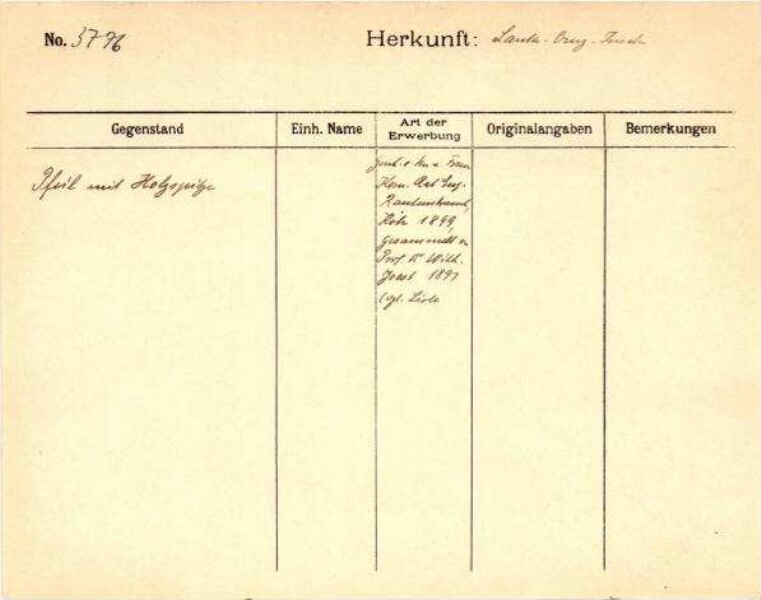 No. 3796
Herkunft: Santa-Cruz-Inseln
Gegenstand
Einh. Name
Art der Erwerbung
Originalangaben
Bemerkungen
Pfeil mit Holzspitze
Gesch. v.
Rautenstrauch,
Köln 1899,
gesammelt v.
Prof. Dr Wilh.
Joest 1897
(vgl. Liste